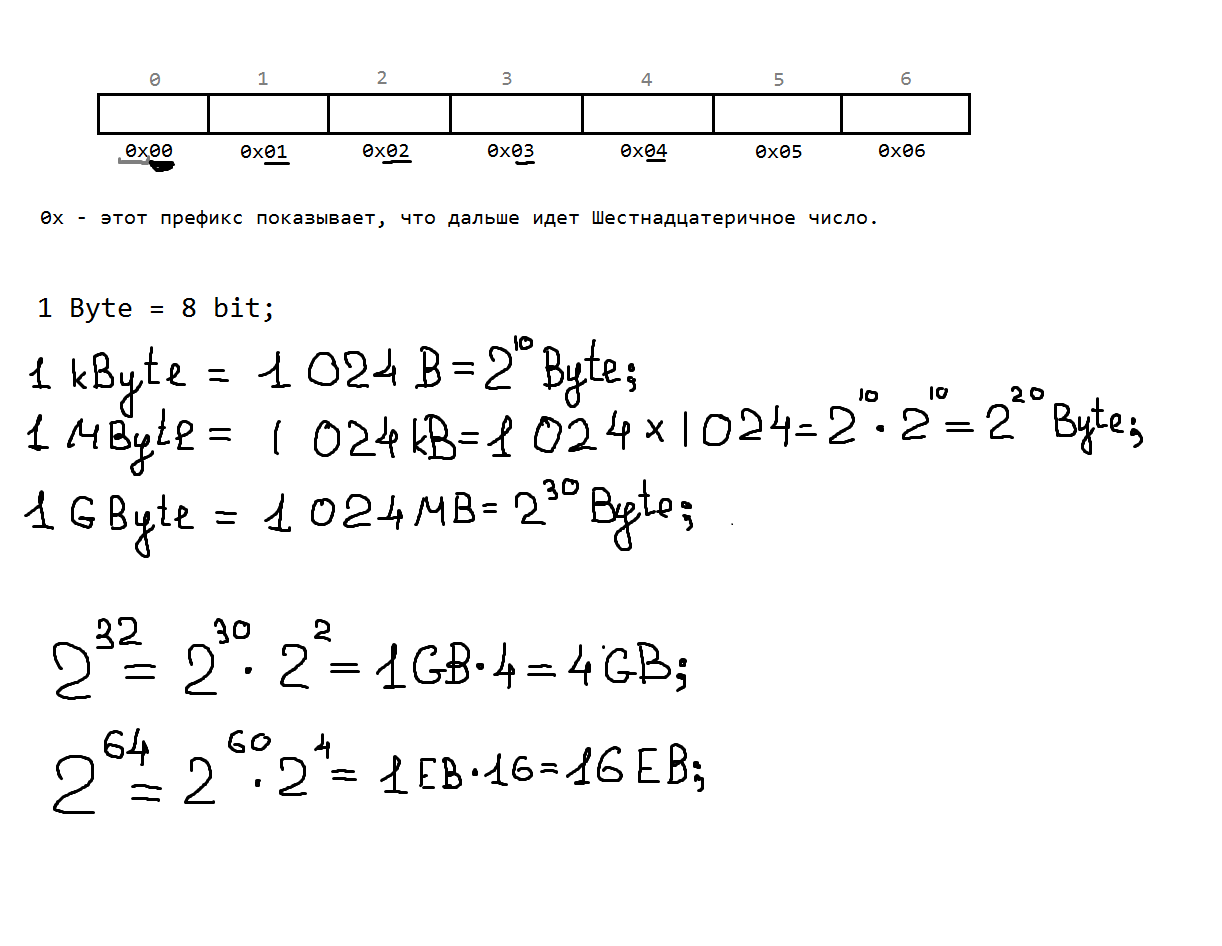 0 1 2 3 4 5 6
0x00 0x01 0x02 0x03 0x04 0x05 0x06
0x - этот префикс показывает, что дальше идет Шестнадцатеричное число.
1 Byte = 8 bit;
1 kByte = 1 024 B = 2¹⁰ Byte;
1 MByte = 1 024 kB = 1 024 x 1024 = 2¹⁰ · 2¹⁰ = 2²⁰ Byte;
1 GByte = 1 024 MB = 2³⁰ Byte;
2³² = 2³⁰ · 2² = 1GB · 4 = 4 GB;
2⁶⁴ = 2⁶⁰ · 2⁴ = 1 EB · 16 = 16 EB;